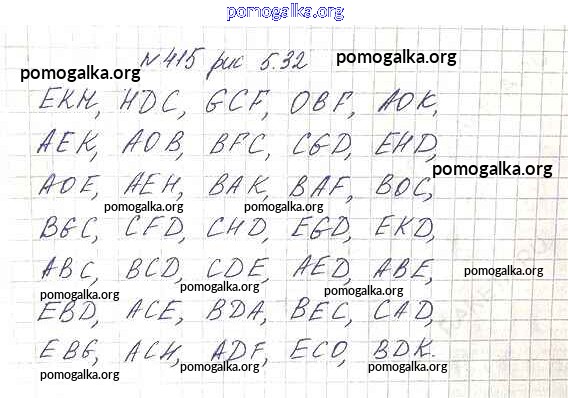 pomogalka.org
№415 рис 5.32
pomogalka.org pomogalka.org
EKH, HDC, GCF, OBF, AOK,
AEK, AOB, BFC, CGD, EHD,
pomogalka.org
AOE, AEH, BAK, BAF, BOC,
pomogalka.org pomogalka.org
BGC, CFD, CHD, EGD, EKD,
ABC, BCD, CDE, AED, ABE,
pomogalka.org
pomogalka.org pomogalka.org
EBD, ACE, BDA, BEC, CAD,
EBG, ACH, ADF, ECO, BDK.
pomogalka.org pomogalka.org